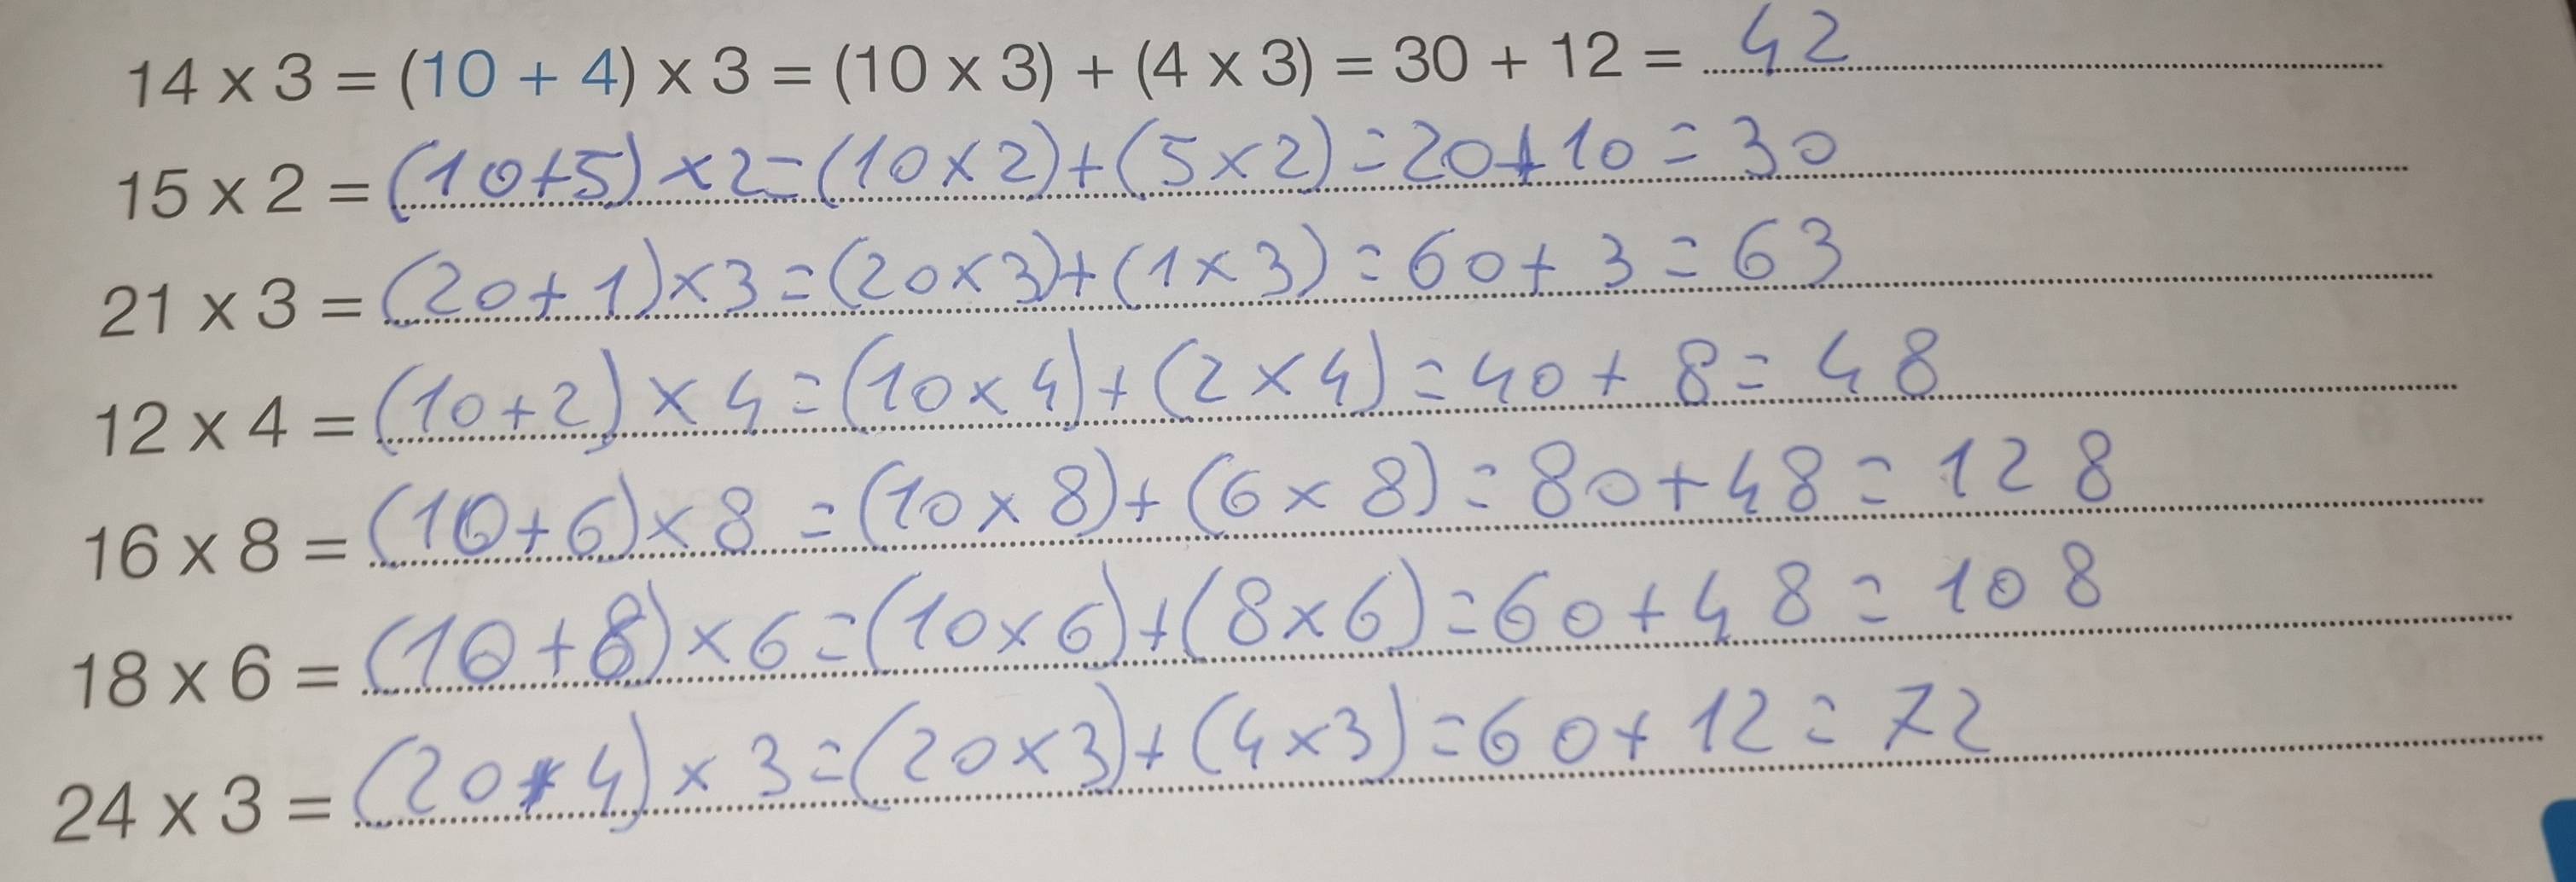 14 x 3 = (10 + 4) x 3 = (10 x 3) + (4 x 3) = 30 + 12 = 42
15 x 2 = (10+5) x2=(10x2)+(5x2)=20+10=30
21 x 3 = (20+1)x3=(20x3)+(1x3)=60+3=63
12 x 4 = (10+2)x4=(10x4)+(2x4)=40+8=48
16 x 8 = (10+6)x8=(10x8)+(6x8)=80+48=128
18 x 6 = (10+8)x6=(10x6)+(8x6)=60+48=108
24 x 3 = (20+4)x3=(20x3)+(4x3)=60+12=72